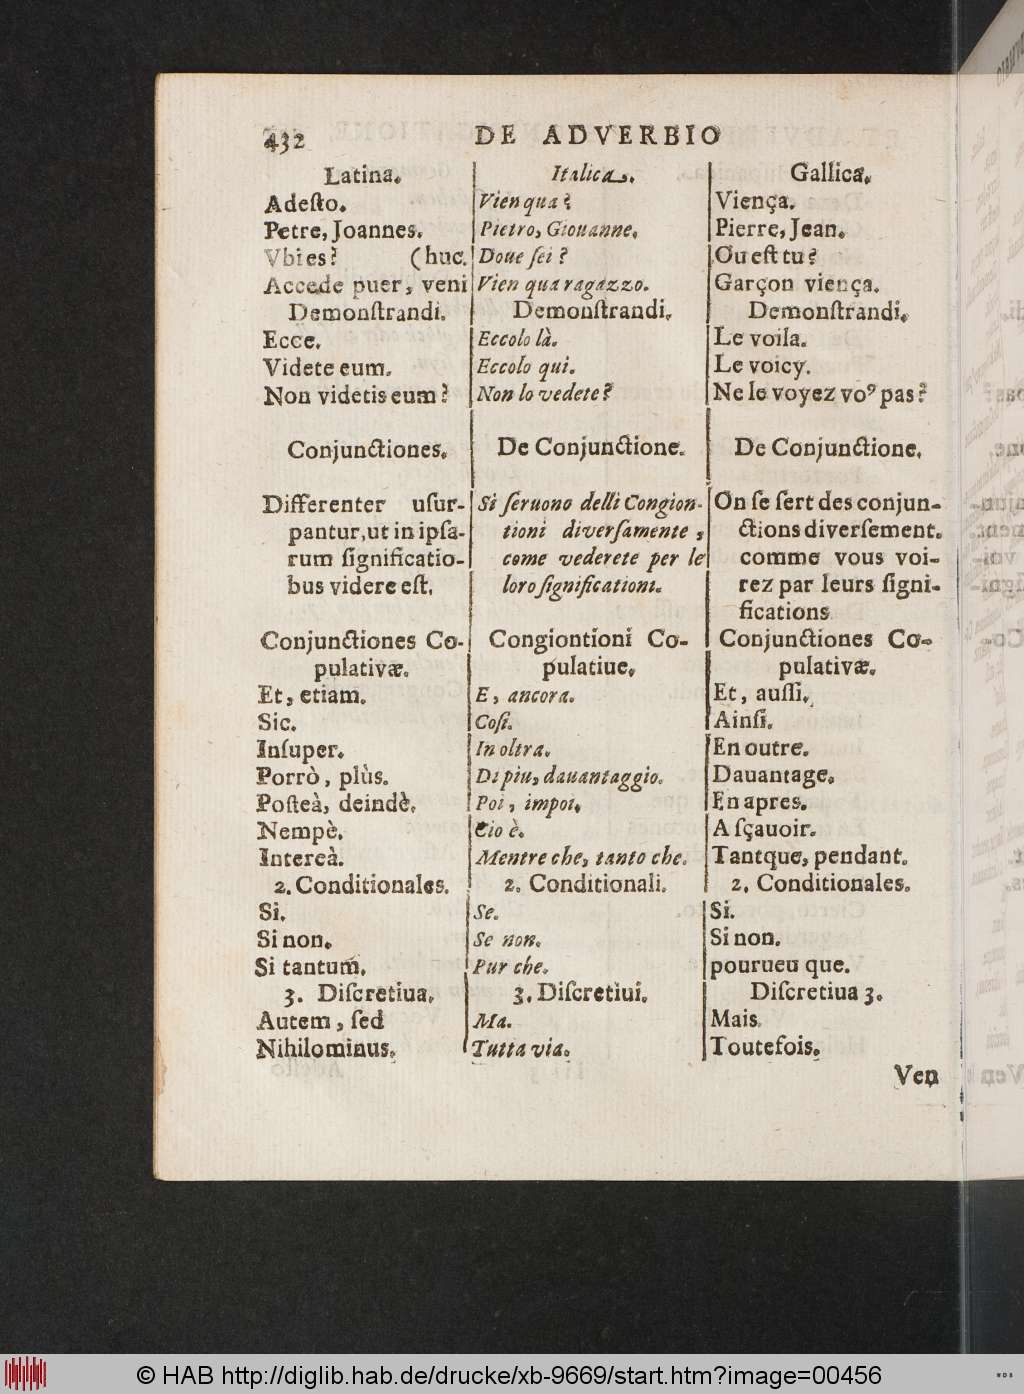 432 DE ADVERBIO
Latina.
Adeſto.
Petre, Joannes.
Vbi es? (huc.
Accede puer, veni
Demonſtrandi.
Ecce.
Videte eum.
Non videtis eum?
Conjunctiones.
Differenter uſur-
pantur, ut in ipſa-
rum ſignificatio-
bus videre eſt.
Conjunctiones Co-
pulativæ.
Et, etiam.
Sic.
Inſuper.
Porrò, plùs.
Poſteà, deindè.
Nempè.
Intereà.
2. Conditionales.
Si.
Si non.
Si tantum.
3. Diſcretiva.
Autem, ſed
Nihilominus.
Italica.
Vien qua?
Pietro, Giouanne.
Doue ſei?
Vien qua ragazzo.
Demonſtrandi.
Eccolo là.
Eccolo qui.
Non lo vedete?
De Conjunctione.
Si ſeruono delli Congion-
tioni diverſamente,
come vederete per le
loro ſignificationi.
Congiontioni Co-
pulatiue.
E, ancora.
Coſi.
In oltra.
Di piu, dauantaggio.
Poi, impoi.
Cio è.
Mentre che, tanto che.
2. Conditionali.
Se.
Se non.
Pur che.
3. Diſcretiui.
Ma.
Tutta via.
Gallica.
Viença.
Pierre, Jean.
Ou eſt tu?
Garçon viença.
Demonſtrandi.
Le voila.
Le voicy.
Ne le voyez vo⁹ pas?
De Conjunctione.
On ſe ſert des conjun-
ctions diverſement.
comme vous voi-
rez par leurs ſigni-
fications
Conjunctiones Co-
pulativæ.
Et, auſſi.
Ainſi.
En outre.
Dauantage.
En apres.
A ſçauoir.
Tantque, pendant.
2. Conditionales.
Si.
Si non.
pourueu que.
Diſcretiua 3.
Mais.
Toutefois.
Ven
© HAB http://diglib.hab.de/drucke/xb-9669/start.htm?image=00456